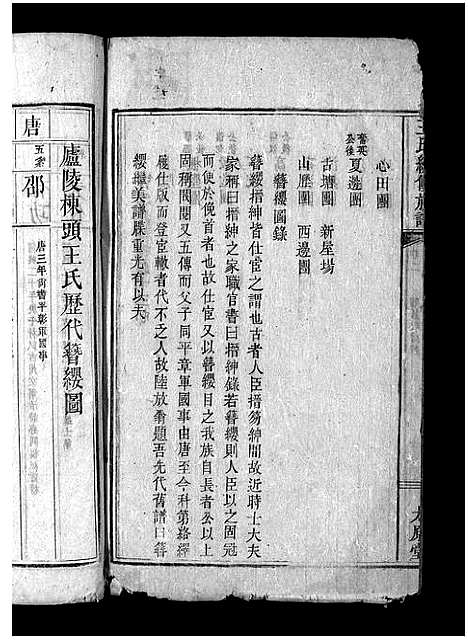 王氏續修族譜
心田團
夏㴚團
古塘團　新屋場
山歷團　西邊團
簪纓圖錄
簪纓搢紳皆仕宦之謂也古者人臣搢笏紳間故近時士大夫
家稱曰搢紳之家職官書曰搢紳錄若簪纓則人臣以之固冠
而使不於俛首者也故仕宦又以簪纓目之我族自長者公以上
固稱閥閱又五傳而父子同平章軍國事由唐至今科第絡繹
履仕版而登宦轍者代不乏人故陸放翁題吾先代舊譜曰簪
纓繼美譜牒重光有以夫
太原堂
廬陵棟頭王氏歷代簪纓圖
唐
五代
邵
唐三年同平章軍國事